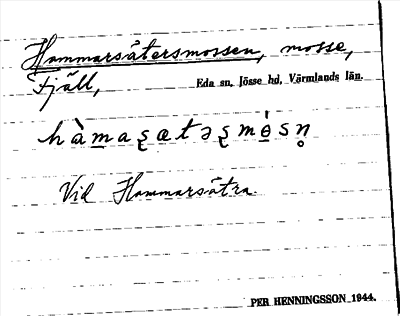 Hammarsätersmossen, mosse,
Fjäll,
Eda sn, Jösse hd, Värmlands län.
hὰm̲aʂætəʂmɵ̀sn̥
Vid Hammarsätra.
PER HENNINGSSON 1944.